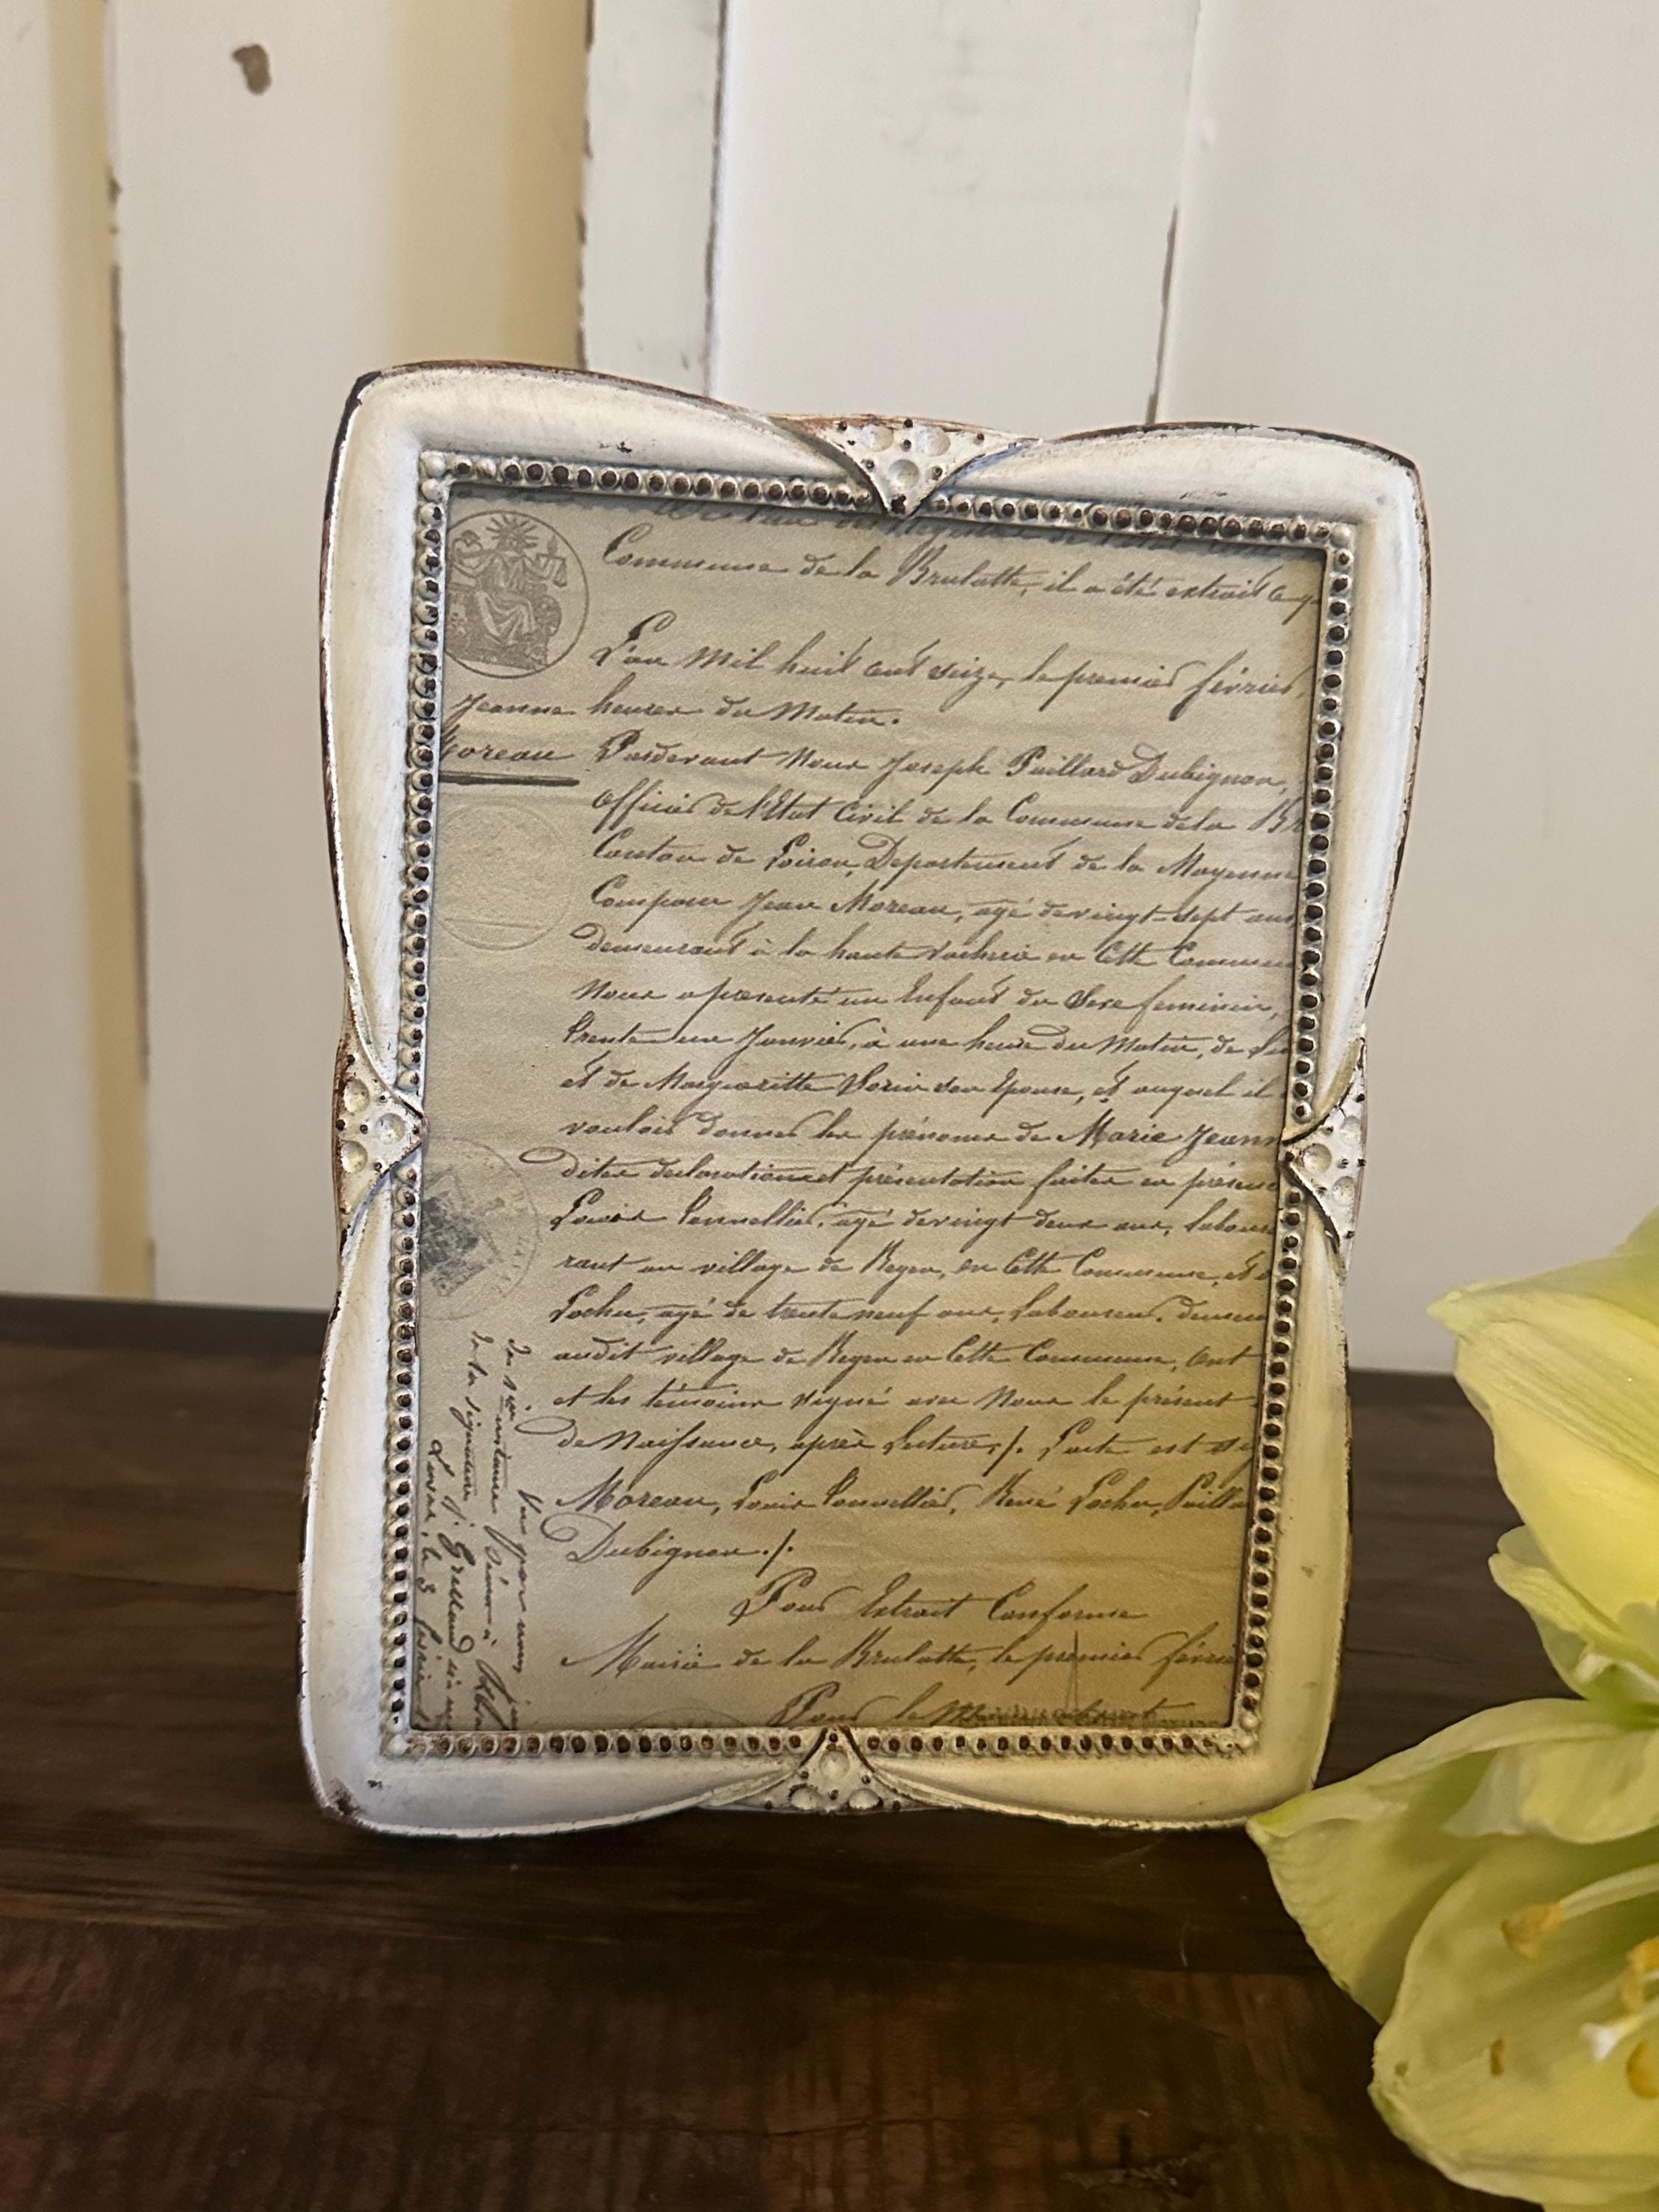 Commune de la Brulatte, il a été extrait ce q
L'an Mil huit cent seize, le premier février,
Jeanne
Moreau
heures du Matin.
Pardevant Nous Joseph Paillard Dubignon,
officier de l'Etat Civil de la Commune de la Br
Canton de Loiron, Departement de la Mayenne
Comparu Jean Moreau, agé de vingt-sept ans
demeurant à la haute Vacherie en Cette Commune
Nous a présenté un Enfant du Sexe feminin,
trente un Janvier, à une heure du Matin, de
et de Margueritte son Epouse, et auquel il
vouloir donner les prénoms de Marie Jeanne
dites declaration et présentation faites en présence
Louis agé de vingt deux ans, Labour
rant au village de en Cette Commune, et
agé de trente neuf ans, Laboureur, demeu
audit village de en Cette Commune, Ont
et les témoins signé avec Nous le présent
de Naissance, après Lecture./. Lacte est
Moreau, Louis René Paillard
Dubignon./.
Pour Extrait Conforme
Mairie de la Brulatte, le premier février
Pour le
Vu par nous
de la signature
Laval, le 3 février